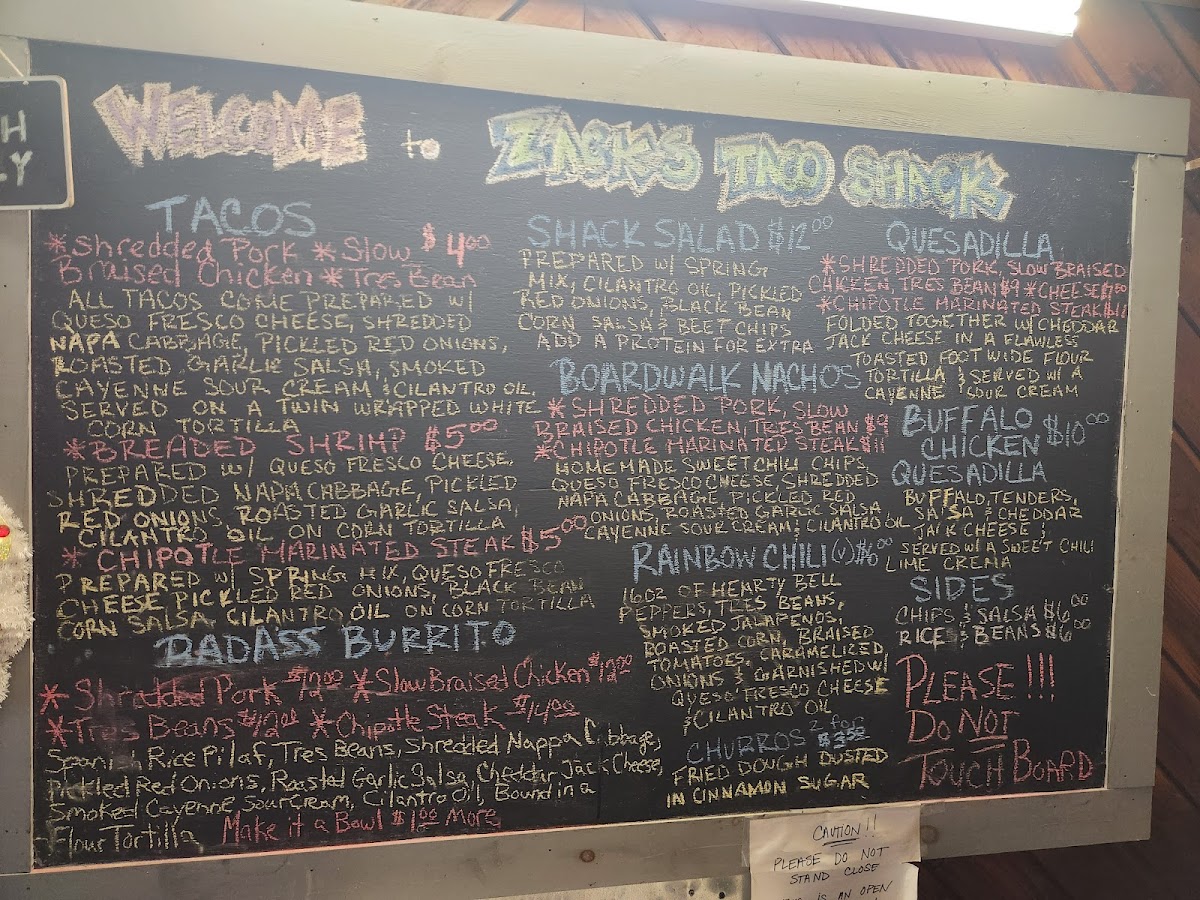 H
LY
WELCOME to ZACK'S TACO SHACK
TACOS
*Shredded Pork *Slow $4.00
Braised Chicken *Tres Bean
ALL TACOS COME PREPARED W/
QUESO FRESCO CHEESE, SHREDDED
NAPA CABBAGE, PICKLED RED ONIONS,
ROASTED GARLIC SALSA, SMOKED
CAYENNE SOUR CREAM & CILANTRO OIL,
SERVED ON A TWIN WRAPPED WHITE
CORN TORTILLA
*BREADED SHRIMP $5.00
PREPARED W/ QUESO FRESCO CHEESE,
SHREDDED NAPA CABBAGE, PICKLED
RED ONIONS, ROASTED GARLIC SALSA,
CILANTRO OIL ON CORN TORTILLA
* CHIPOTLE MARINATED STEAK $5.00
PREPARED W/ SPRING MIX, QUESO FRESCO
CHEESE, PICKLED RED ONIONS, BLACK BEAN
CORN SALSA, CILANTRO OIL ON CORN TORTILLA
BADASS BURRITO
* Shredded Pork $12.00 *Slow Braised Chicken $12.00
*Tres Beans $12.00 *Chipotle Steak $14.00
Spanish Rice Pilaf, Tres Beans, Shredded Nappa Cabbage,
Pickled Red Onions, Roasted Garlic Salsa, Cheddar Jack Cheese,
Smoked Cayenne Sour Cream, Cilantro Oil, Bound in a
Flour Tortilla Make it a Bowl $1.00 More
SHACK SALAD $12.00
PREPARED W/ SPRING
MIX, CILANTRO OIL, PICKLED
RED ONIONS, BLACK BEAN
CORN SALSA & BEET CHIPS
ADD A PROTEIN FOR EXTRA
BOARDWALK NACHOS
*SHREDDED PORK, SLOW
BRAISED CHICKEN, TRES BEAN $9
*CHIPOTLE MARINATED STEAK $11
HOMEMADE SWEET CHILI CHIPS,
QUESO FRESCO CHEESE, SHREDDED
NAPA CABBAGE, PICKLED RED
ONIONS, ROASTED GARLIC SALSA
CAYENNE SOUR CREAM & CILANTRO OIL
RAINBOW CHILI (V) $6.00
16OZ OF HEARTY BELL
PEPPERS, TRES BEANS,
SMOKED JALAPENOS,
ROASTED CORN, BRAISED
TOMATOES, CARAMELIZED
ONIONS & GARNISHED W/
QUESO FRESCO CHEESE
& CILANTRO OIL
CHURROS 2 for $3.50
FRIED DOUGH DUSTED
IN CINNAMON SUGAR
QUESADILLA
*SHREDDED PORK, SLOW BRAISED
CHICKEN, TRES BEAN $9 *CHEESE
*CHIPOTLE MARINATED STEAK $11
FOLDED TOGETHER W/ CHEDDAR
JACK CHEESE IN A FLAWLESS
TOASTED FOOT WIDE FLOUR
TORTILLA & SERVED W/ A
CAYENNE SOUR CREAM
BUFFALO
CHICKEN $10.00
QUESADILLA
BUFFALO TENDERS,
SALSA & CHEDDAR
JACK CHEESE &
SERVED W/ A SWEET CHILI
LIME CREMA
SIDES
CHIPS & SALSA $6.00
RICE & BEANS $6.00
PLEASE!!!
DO NOT
TOUCH BOARD
CAUTION!!
PLEASE DO NOT
STAND CLOSE
IS AN OPEN